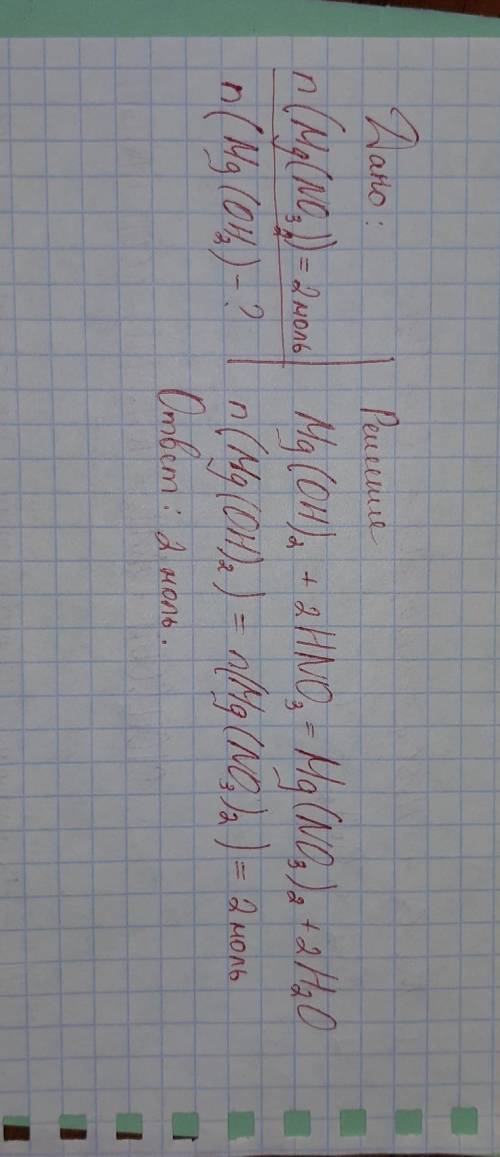 Дано:
n(Mg(NO₃)₂) = 2 моль
n(Mg(OH₂) - ?
Решение
Mg(OH)₂ + 2HNO₃ = Mg(NO₃)₂ + 2H₂O
n(Mg(OH)₂) = n(Mg(NO₃)₂) = 2 моль
Ответ: 2 моль.